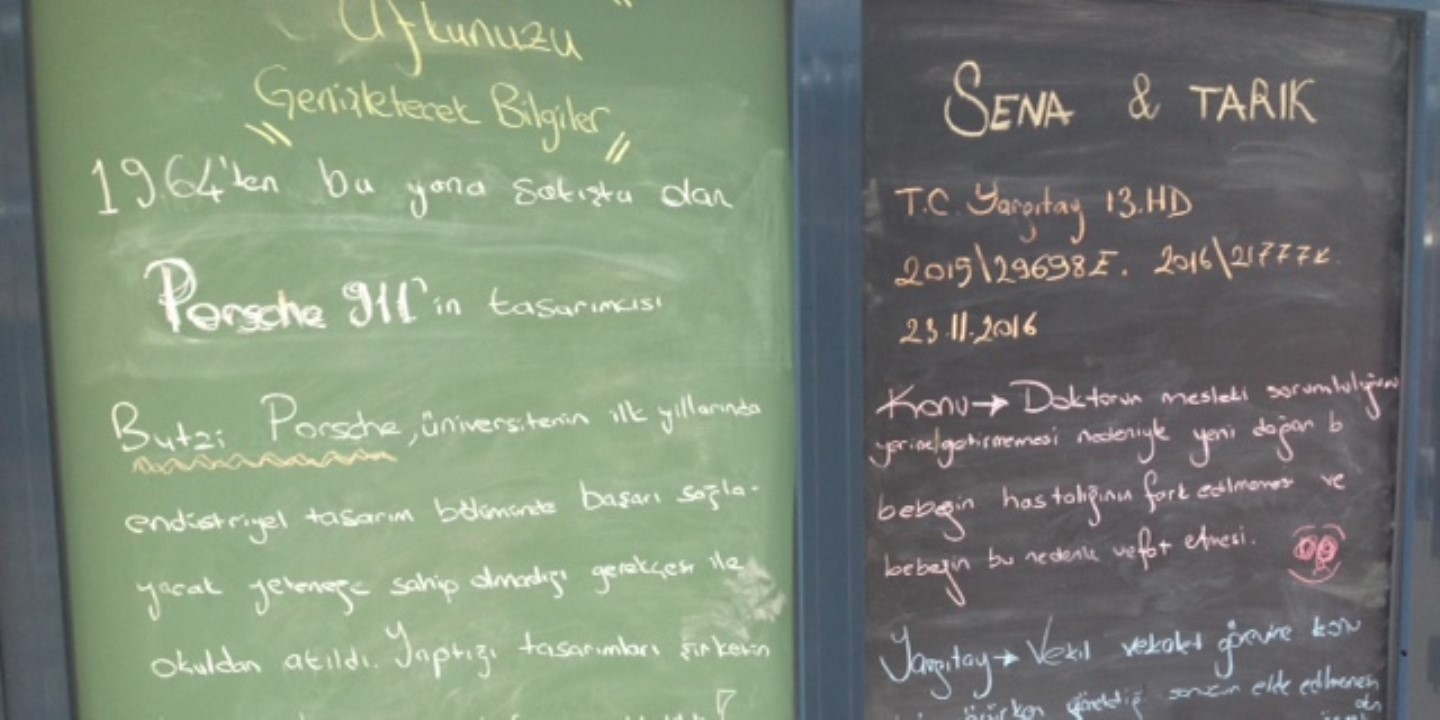 Ufkunuzu
Genişletecek Bilgiler
1964'ten bu yana satışta olan
Porsche 911'in tasarımcısı
Butzi Porsche, üniversitenin ilk yıllarında
endüstriyel tasarım bölümünde başarı sağla-
yacak yeteneğe sahip olmadığı gerekçesi ile
okuldan atıldı. Yaptığı tasarımları şirketin
SENA & TARIK
T.C. Yargıtay 13.HD
2015\29698E. 2016\21777K
23.11.2016
Konu→ Doktorun mesleki sorumluluğunu
yerine getirmemesi nedeniyle yeni doğan b
bebeğin hastalığının fark edilmemesi ve
bebeğin bu nedenle vefat etmesi.
Yargıtay→ Vekil vekalet görevine konu
görürken gerektiği sonucun elde edilmemesi